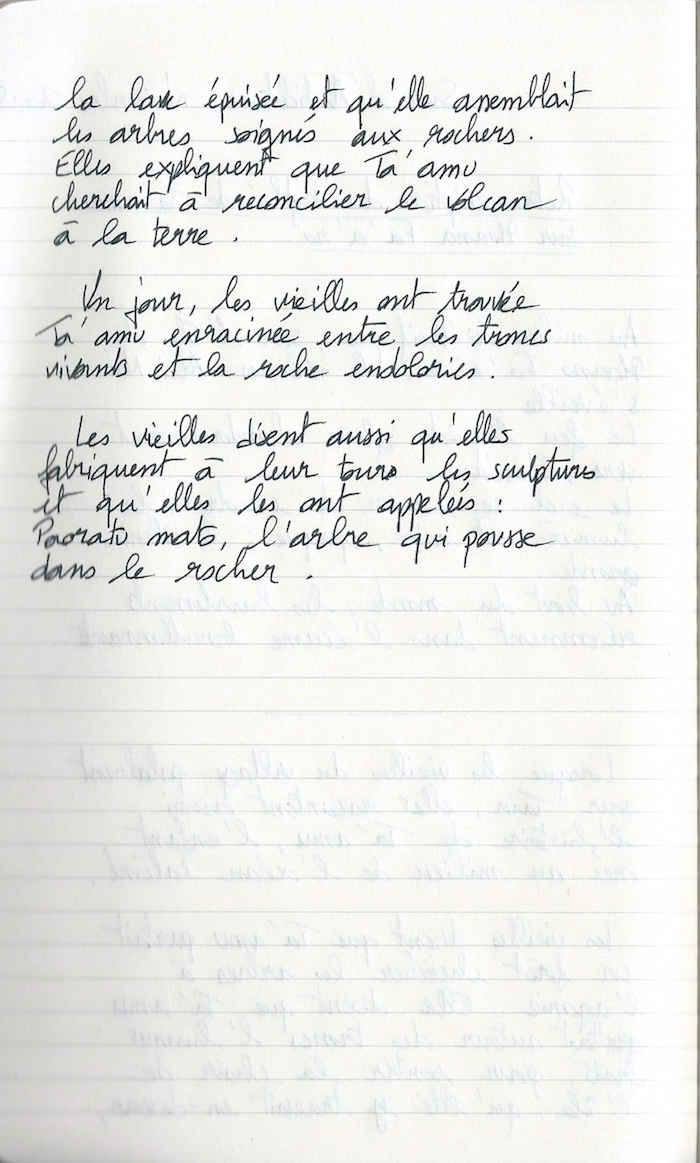 la lave épuisée et qu'elle assemblait
les arbres soignés aux rochers.
Elles expliquent que Ta'amu
cherchait à reconcilier le volcan
à la terre.
Un jour, les vieilles ont trouvée
Ta'amu enracinée entre les troncs
vivants et la roche endolories.
Les vieilles disent aussi qu'elles
fabriquent à leur tours les sculptures
et qu'elles les ont appelées :
Paorato mato, l'arbre qui pousse
dans le rocher.